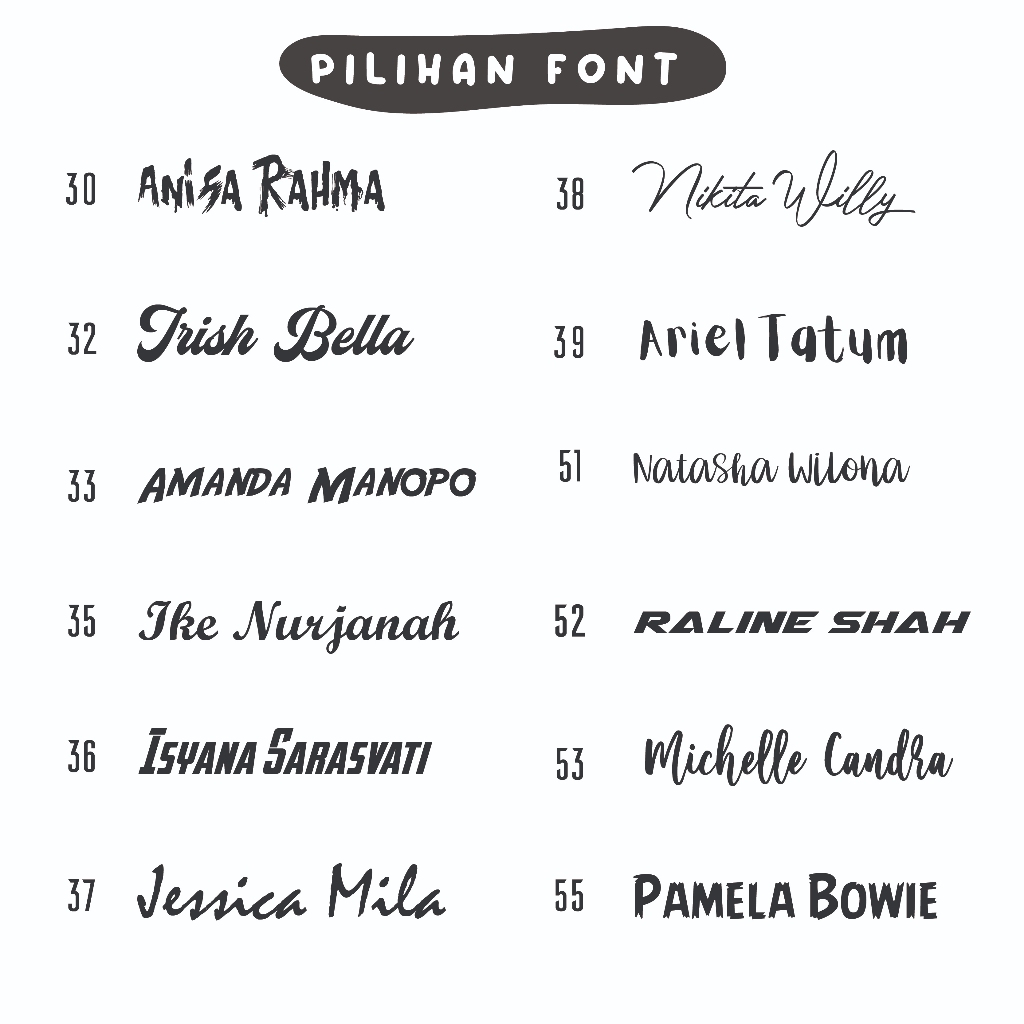 PILIHAN FONT
30 Anisa Rahma
32 Irish Bella
33 Amanda Manopo
35 Ike Nurjanah
36 Isyana Sarasvati
37 Jessica Mila
38 Nikita Willy
39 Ariel Tatum
51 Natasha Wilona
52 RALINE SHAH
53 Michelle Candra
55 Pamela Bowie